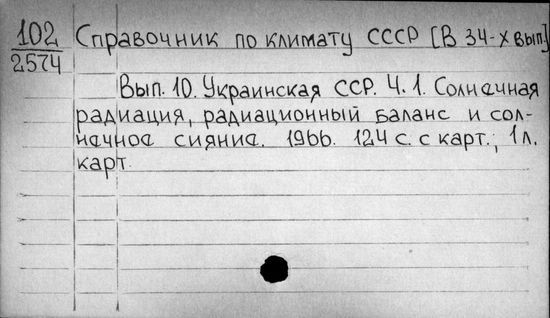 102 Справочник по климату СССР [В 34-х вып.]
2574
Вып. 10. Украинская ССР. Ч. 1. Солнечная
радиация, радиационный баланс и сол-
нечное сияние. 1966. 124 с. с карт.; 1 л.
карт.